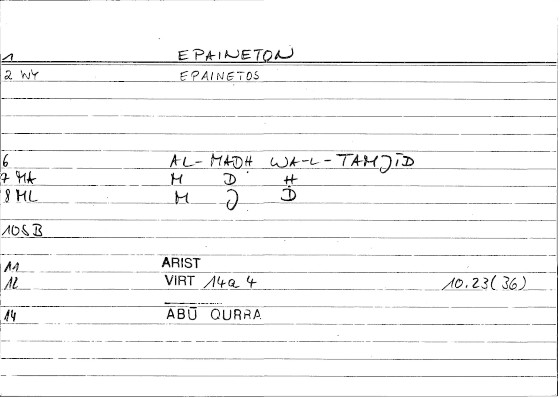 1 EPAINETON
2 WY EPAINETOS
6 AL-MADH WA-L-TAMJĪD
7 MA M D H
8 ML M J D
10SB
11 ARIST
12 VIRT 14a 4 10.23(36)
14 ABŪ QURRA